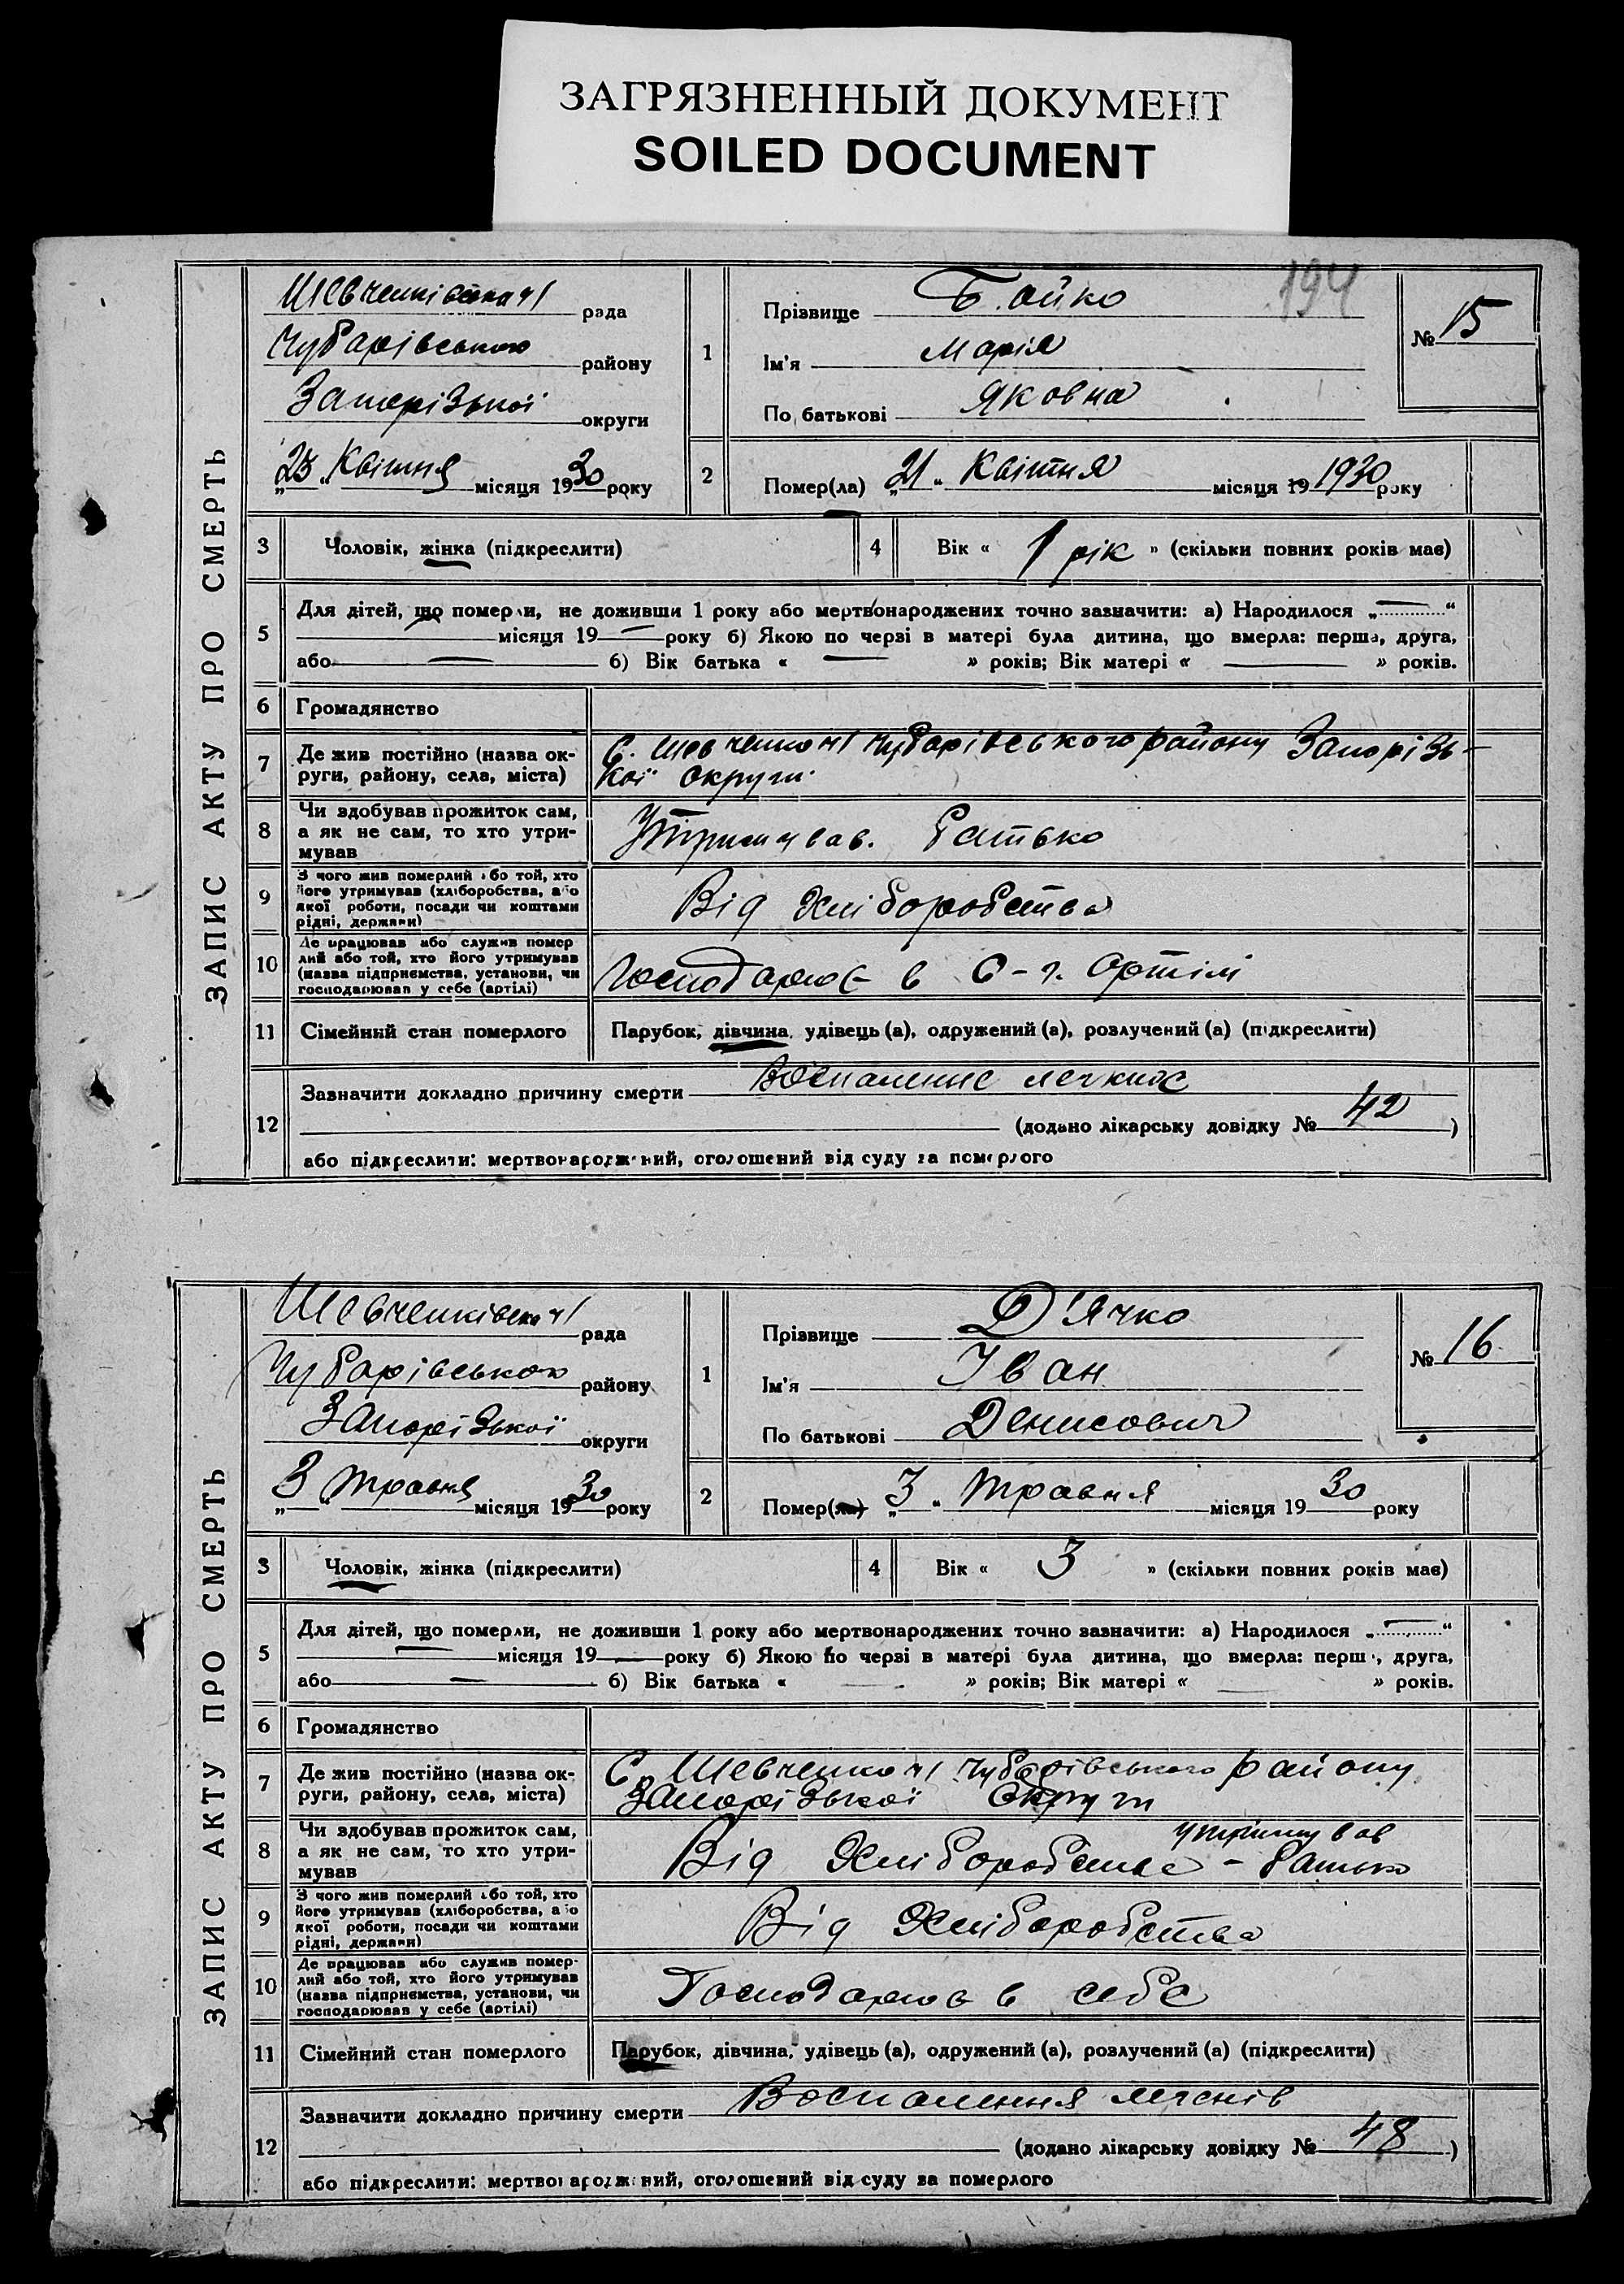 ЗАГРЯЗНЕННЫЙ ДОКУМЕНТ
SOILED DOCUMENT
194
ЗАПИС АКТУ ПРО СМЕРТЬ
Шевченківська №1 рада
Чубарівського району
Запорізької округи
„25“ Квітня місяця 1930 року
1
Прізвище Бойко
Ім'я Марія
По батькові Яковна
№ 15
2
Помер(ла) „21“ Квітня місяця 19 1930 року
3 Чоловік, жінка (підкреслити)
4 Вік « 1 рік » (скільки повних років має)
5
Для дітей, що померли, не доживши 1 року або мертвонароджених точно зазначити: а) Народилося „—“
— місяця 19— року б) Якою по черзі в матері була дитина, що вмерла: перша, друга,
або — б) Вік батька « — » років; Вік матері « — » років.
6 Громадянство
7
Де жив постійно (назва ок-
руги, району, села, міста)
С. Шевченко №1 Чубарівського району Запорізь-
кої округи
8
Чи здобував прожиток сам,
а як не сам, то хто утри-
мував
Утримував. Батько
9
З чого жив померлий або той, хто
його утримував (хліборобства, або
якої роботи, посади чи коштами
рідні, держави)
Від Хліборобства
10
Де працював або служив помер
лий або той, хто його утримував
(назва підприємства, установи, чи
господарював у себе (артілі)
Господарює в С-г. Артілі
11 Сімейний стан померлого
Парубок, дівчина, удівець (а), одружений (а), розлучений (а) (підкреслити)
12
Зазначити докладно причину смерти Воспаление легких
(додано лікарську довідку № 42)
або підкреслити: мертвонароджений, оголошений від суду за померлого
ЗАПИС АКТУ ПРО СМЕРТЬ
Шевченківська №1 рада
Чубарівського району
Запорізької округи
„3“ Травня місяця 1930 року
1
Прізвище Д'ячко
Ім'я Іван
По батькові Денисович
№ 16
2
Помер(ла) „3“ Травня місяця 1930 року
3 Чоловік, жінка (підкреслити)
4 Вік « 3 » (скільки повних років має)
5
Для дітей, що померли, не доживши 1 року або мертвонароджених точно зазначити: а) Народилося „—“
— місяця 19— року б) Якою по черзі в матері була дитина, що вмерла: перша, друга,
або — б) Вік батька « — » років; Вік матері « — » років.
6 Громадянство
7
Де жив постійно (назва ок-
руги, району, села, міста)
С. Шевченко №1 Чубарівського району
Запорізької Округи
8
Чи здобував прожиток сам,
а як не сам, то хто утри-
мував
утримував
Від Хліборобства - Батько
9
З чого жив померлий або той, хто
його утримував (хліборобства, або
якої роботи, посади чи коштами
рідні, держави)
Від Хліборобства
10
Де працював або служив помер-
лий або той, хто його утримував
(назва підприємства, установи, чи
господарював у себе (артілі)
Господарює в себе
11 Сімейний стан померлого
Парубок, дівчина, удівець (а), одружений (а), розлучений (а) (підкреслити)
12
Зазначити докладно причину смерти Воспалення легенів
(додано лікарську довідку № 48)
або підкреслити: мертвонароджений, оголошений від суду за померлого